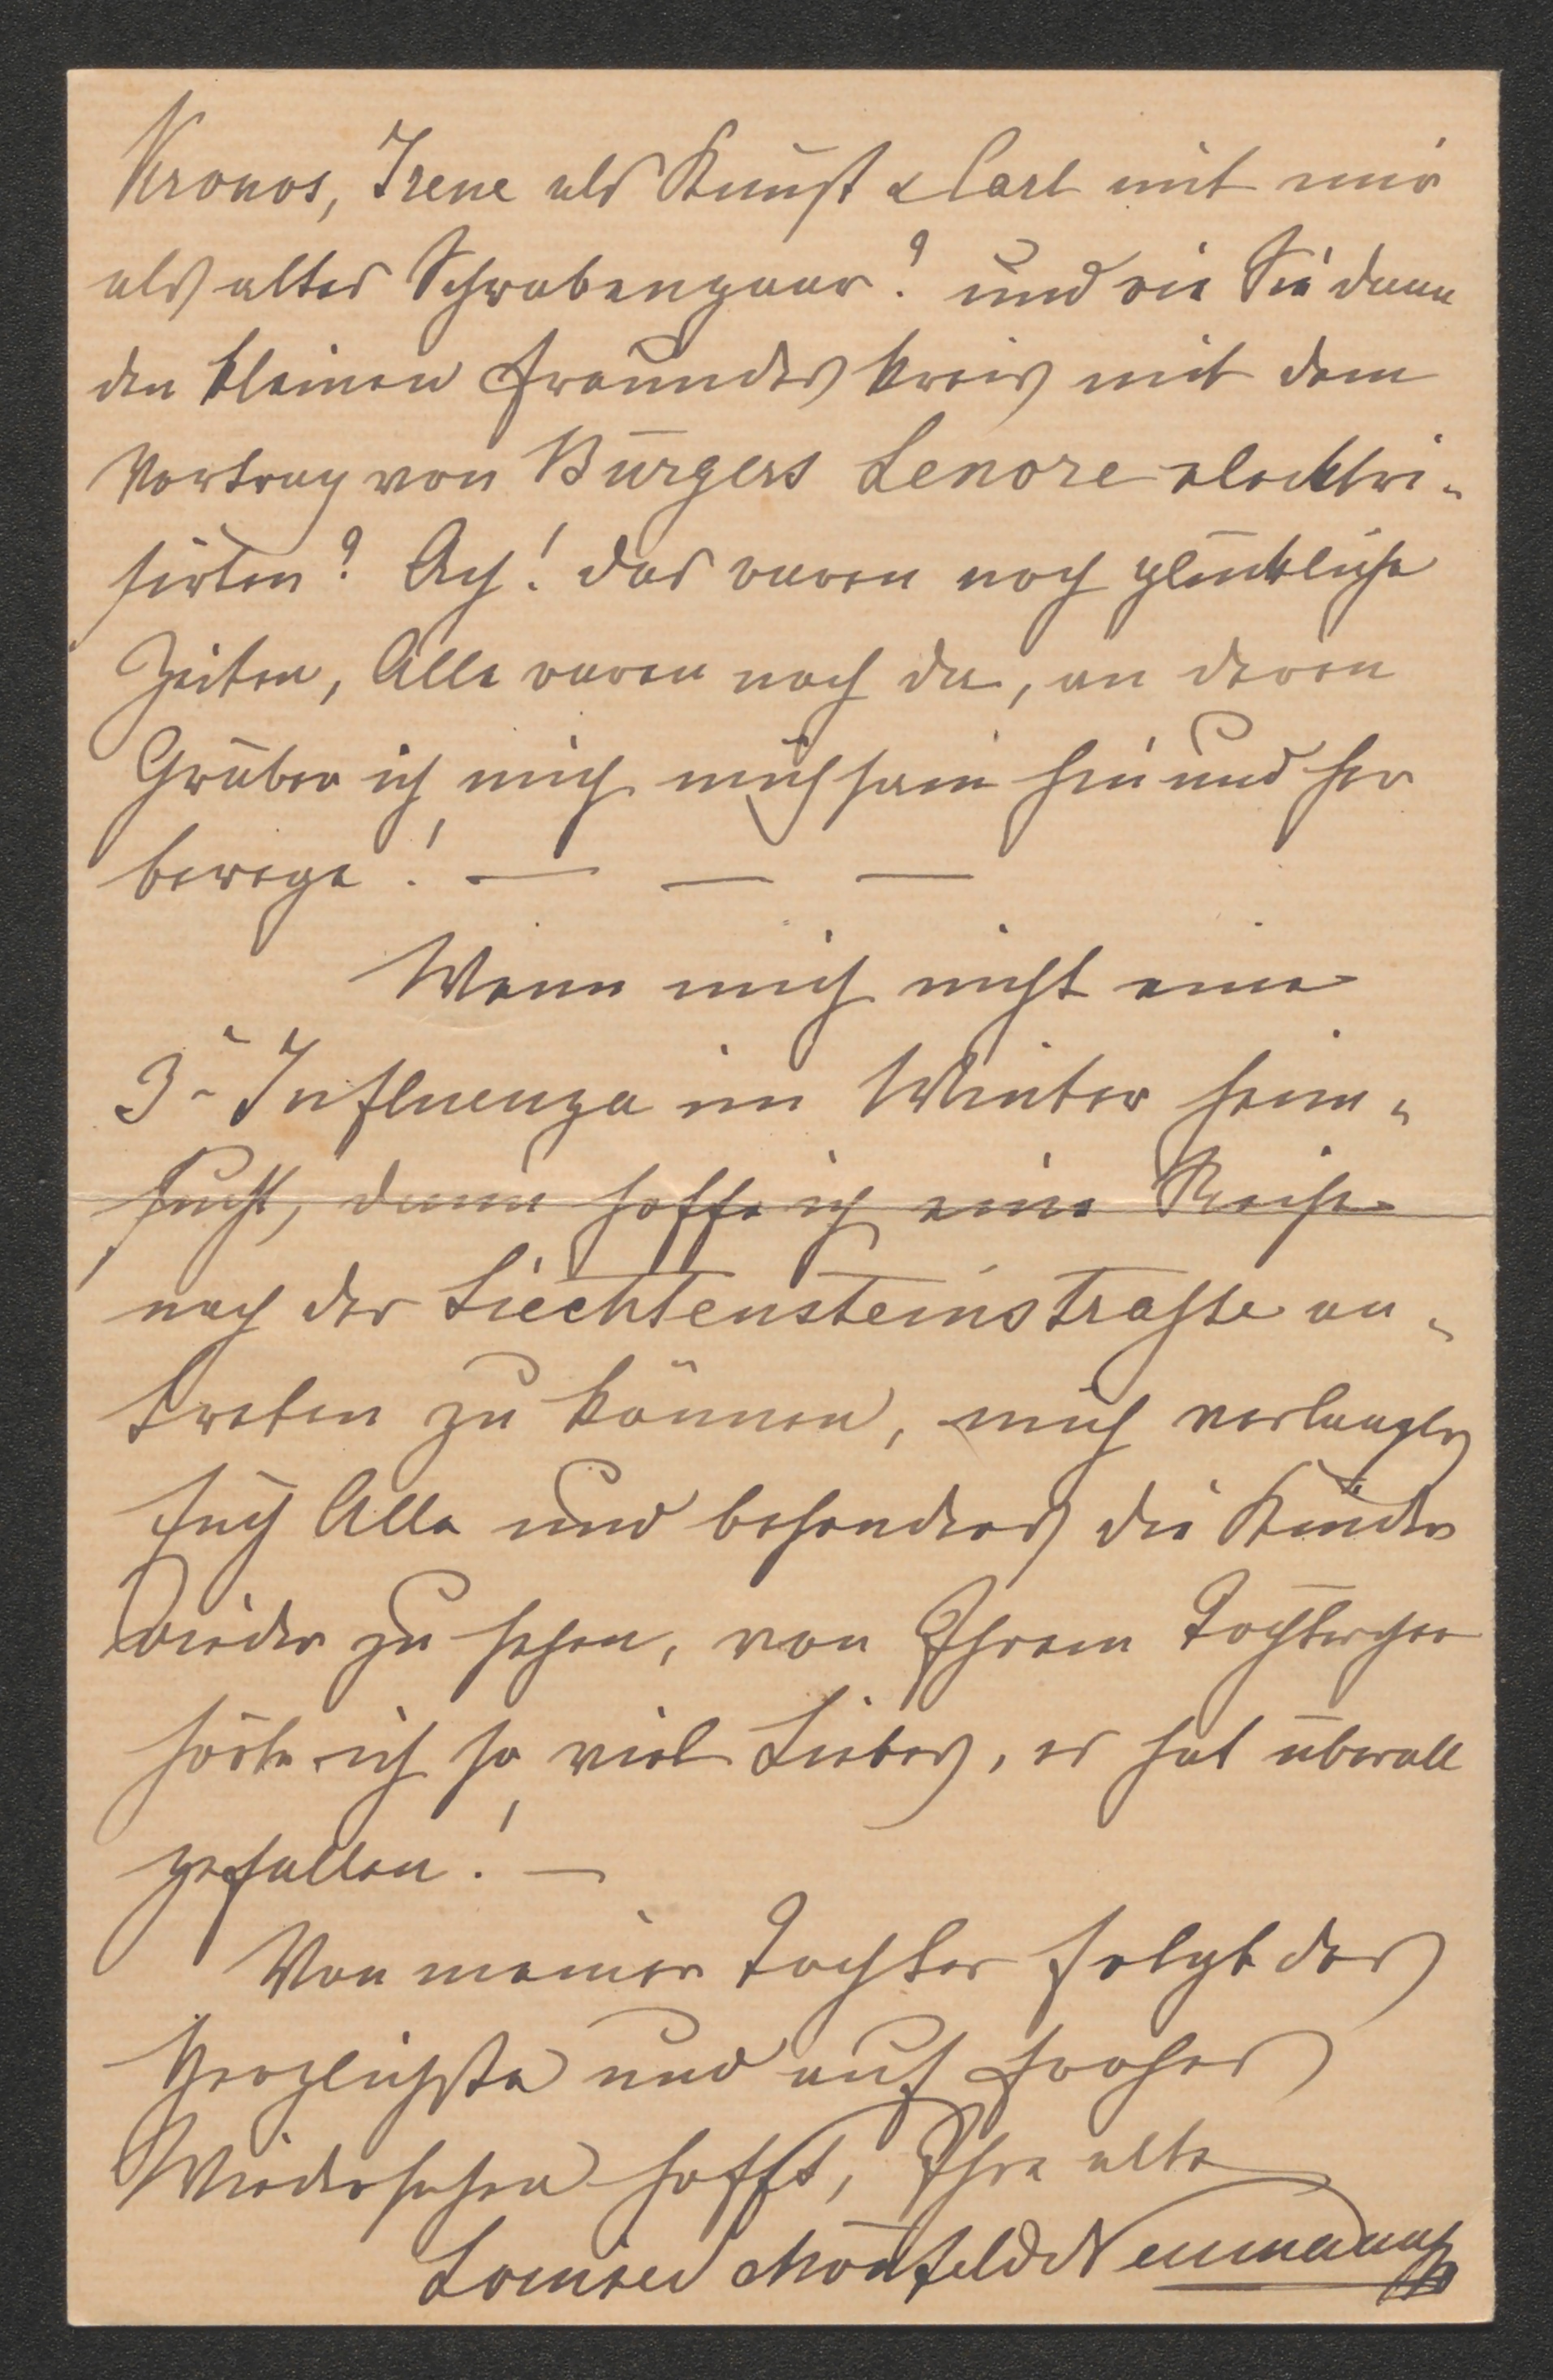 Kronos, Irene als Kunst & Carl mit mir
als altes Schwabenpaar? und wie Sie dann
den kleinen Freundeskreis mit dem
Vortrag von Bürgers Lenore elecktri-
sirten? Ach! das waren noch glückliche
Zeiten, Alle waren noch da, an deren
Gräber ich mich mühsam hin und her
bewege! — — —
Wenn mich nicht eine
3te Influenza im Winter heim-
sucht, dann hoffe ich eine Reise
nach der Liechtensteinstraße an-
treten zu können, mich verlangts
Euch Alle und besonders die Kinder
wieder zu sehen, von Ihrem Töchterchen
hörte ich so viel Liebes, es hat überall
gefallen! —
Von meiner Tochter folgt das
Herzlichste und auf frohes
Wiedersehen hofft, Ihre alte
Louise Schönfeld Neumann